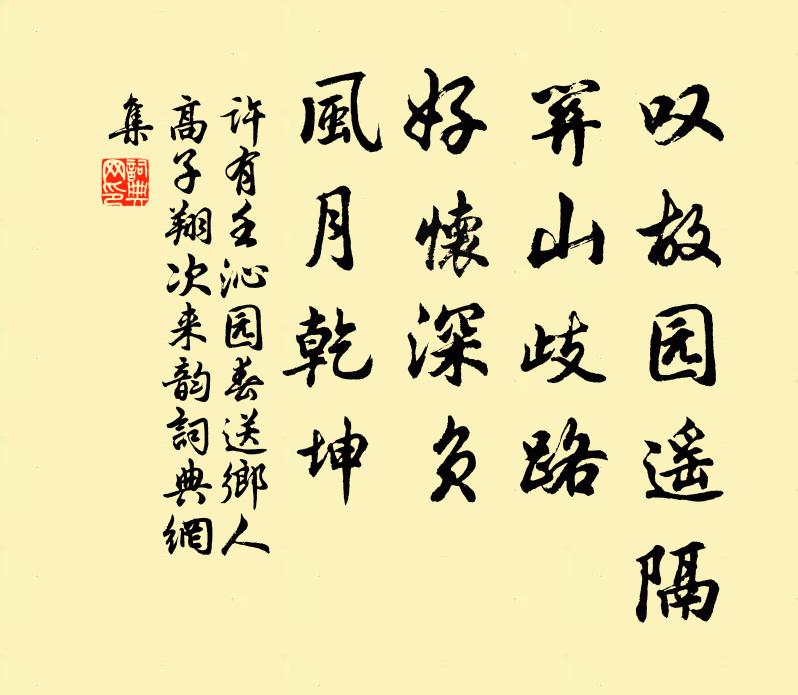 叹故园遥隔
関山歧路
好懷深负
風月乾坤
许有壬沁园春送鄉人
高子翔次来韵詞典網
集
詞典网印